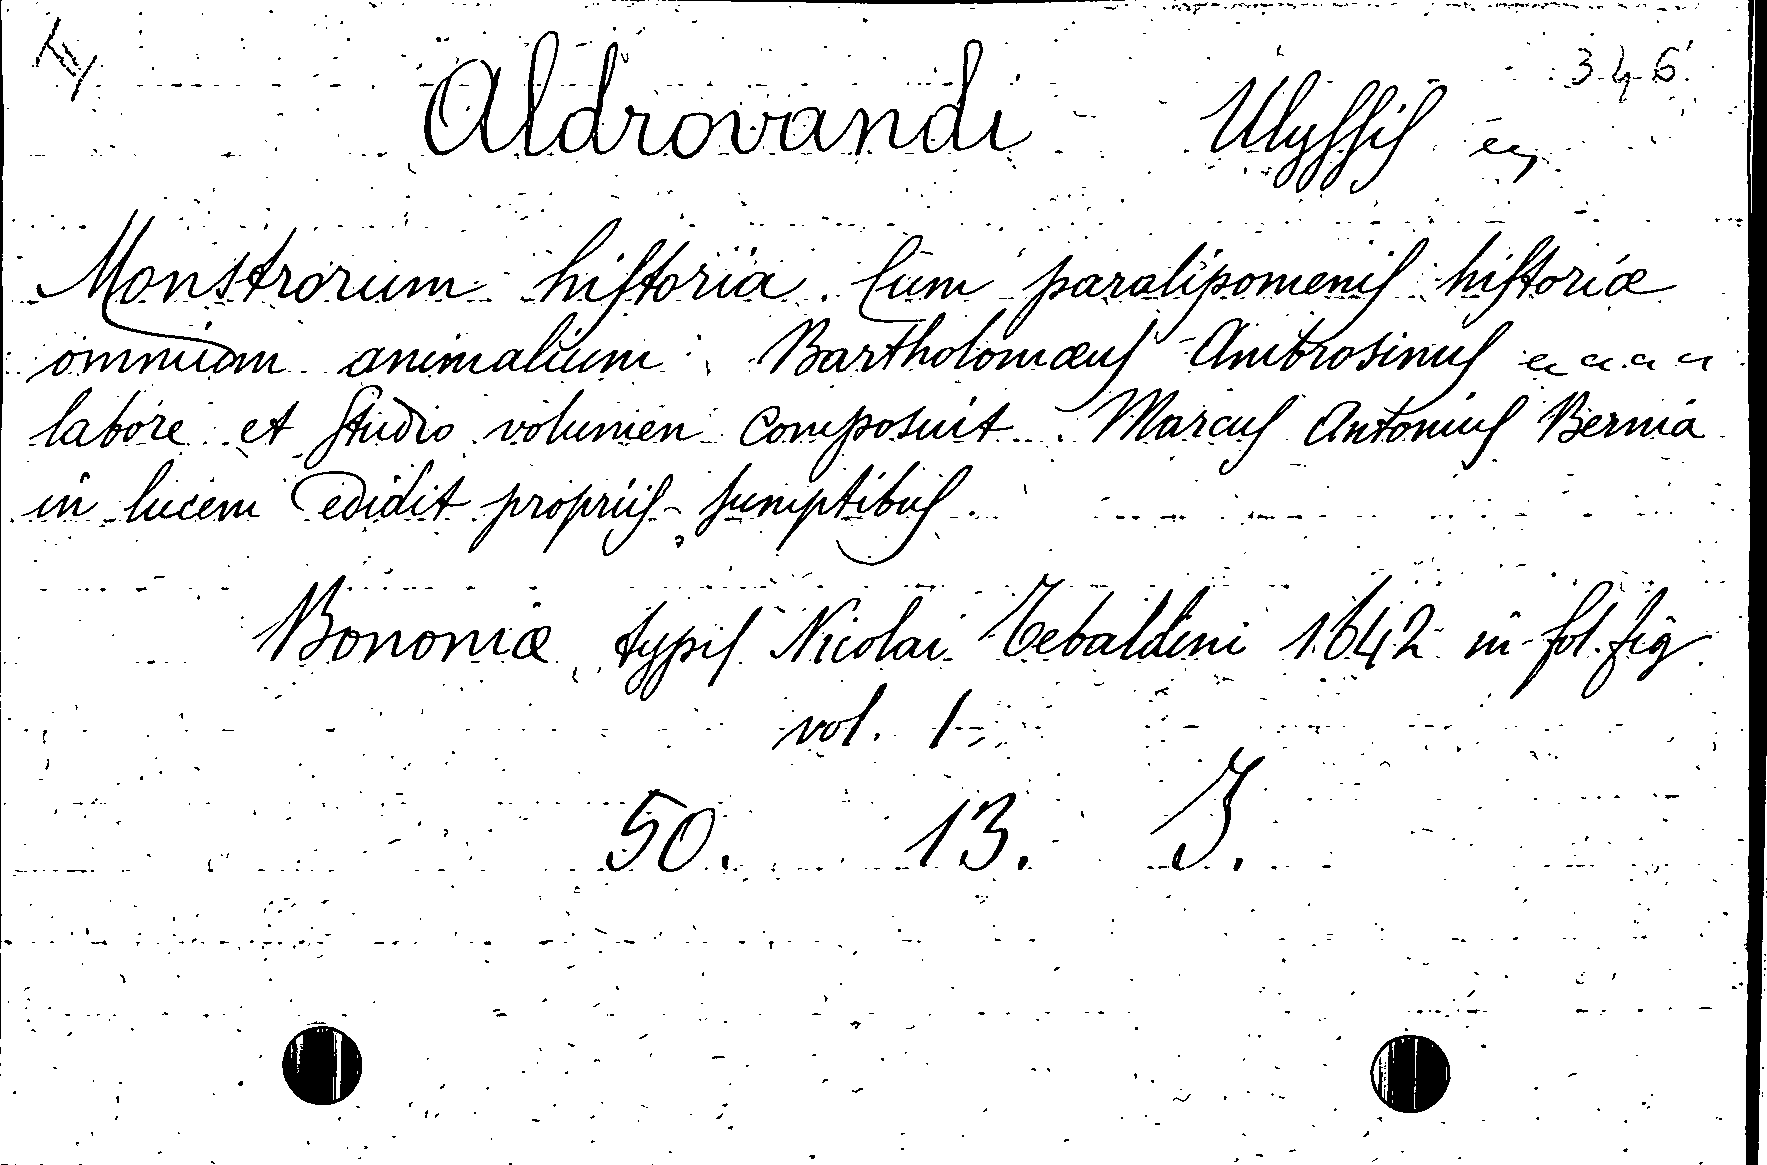 346
Aldrovandi Ulyssis
Monstrorum historia. Cum paralipomenis historiæ
omnium animalium. Bartholomæus Ambrosinus
labore et studio volumen composuit. Marcus Antonius Bernia
in lucem edidit propriis sumptibus.
Bononiæ, typis Nicolai Tebaldini 1642 in fol. fig
vol. 1
50. 13. J.